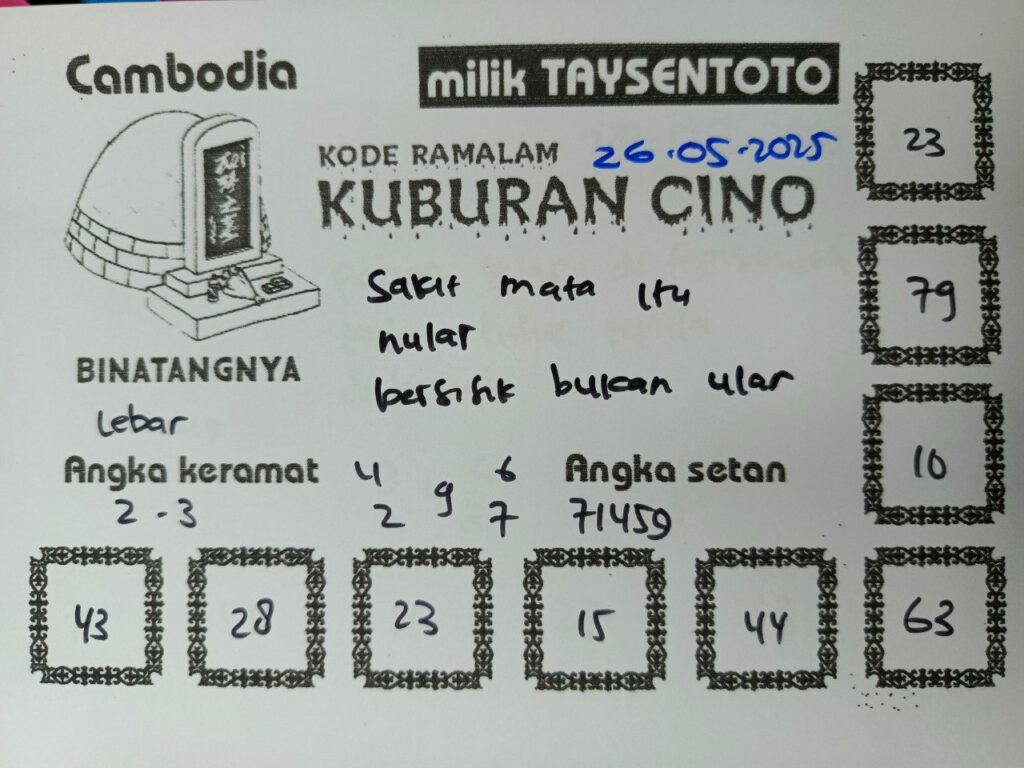 Cambodia
milik TAYSENTOTO
KODE RAMALAM 26.05.2025
KUBURAN CINO
Sakit mata itu
nular
bersisik bukan ular
BINATANGNYA
Lebar
Angka keramat
2 - 3
4 6
9
2 7
Angka setan
71459
23
79
10
43 28 23 15 44 63